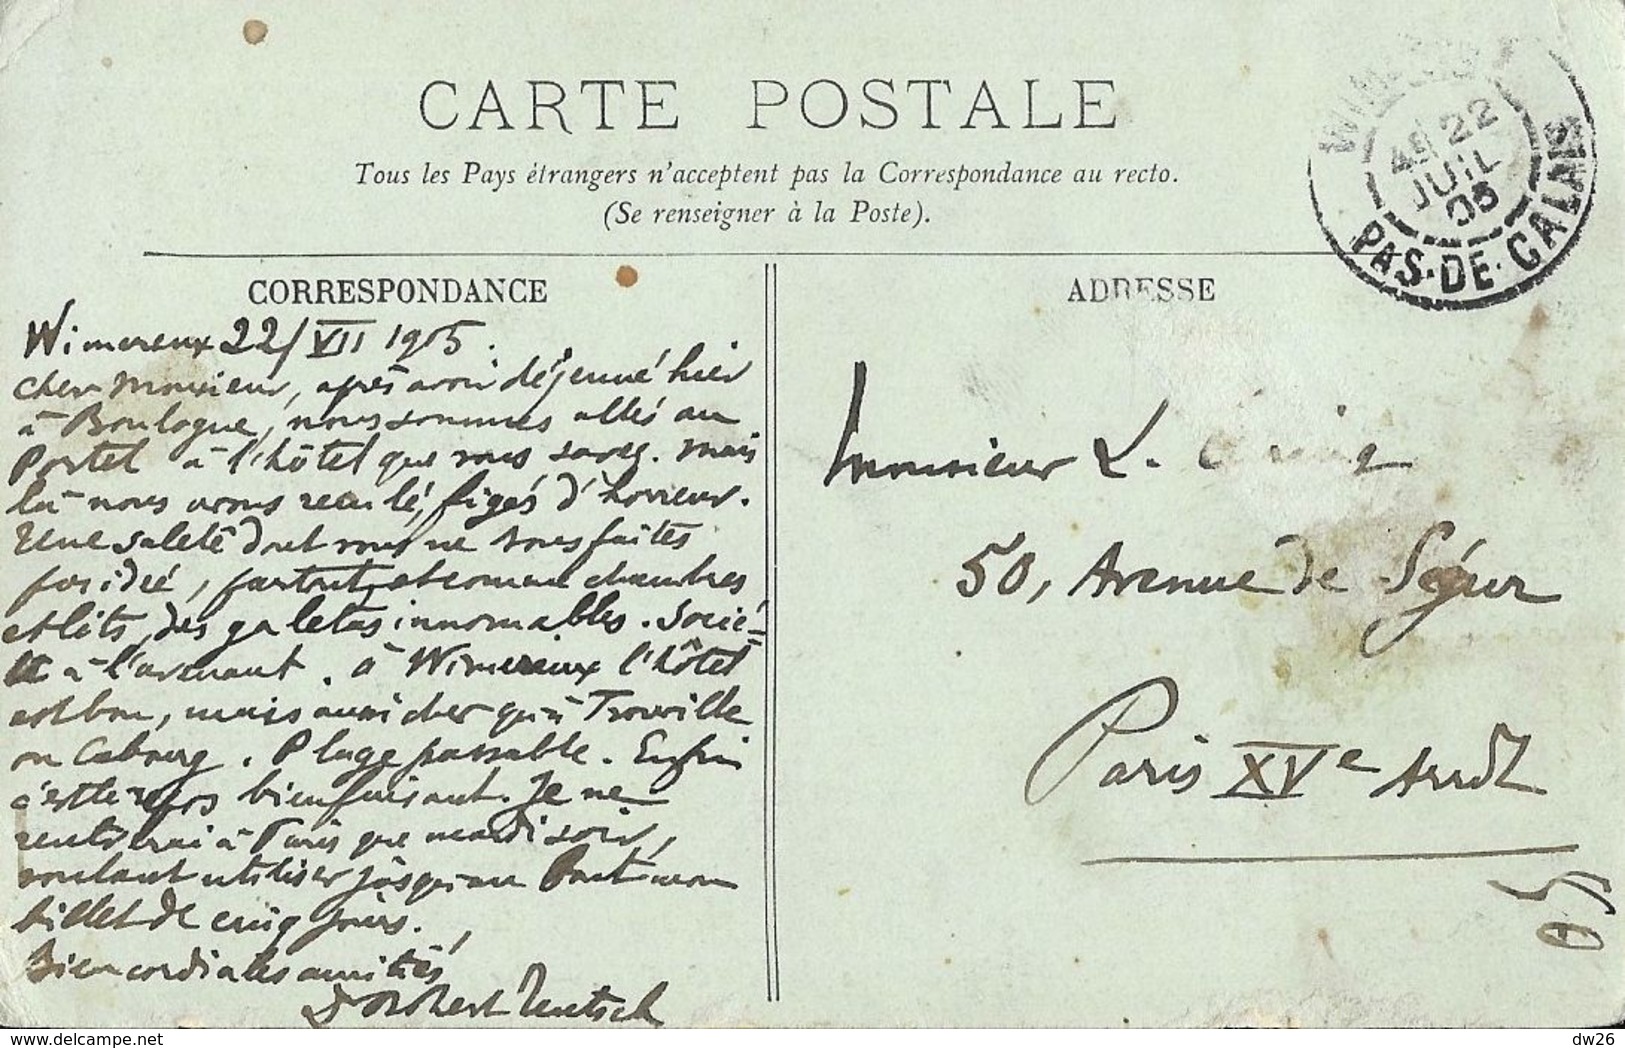 CARTE POSTALE
Tous les Pays étrangers n'acceptent pas la Correspondance au recto.
(Se renseigner à la Poste).
WIMEREUX
4E 22
JUIL
05
PAS-DE-CALAIS
CORRESPONDANCE
Wimereux 22/VII 1905.
Cher Monsieur, après avoir déjeuné hier
à Boulogne, nous sommes allés au
Portel à l'hôtel que vous savez. Mais
là nous avons reculé, figés d'horreur.
Une saleté dont vous ne vous faites
pas idée, partout, et comme chambres
et lits, des galetas innomables. Socié=
té à l'avenant. à Wimereux l'hôtel
est bon, mais aussi cher qu'à Trouville
ou Cabourg. Plage passable. Enfin
c'est le repos bienfaisant. Je ne
rentrerai à Paris que mardi soir,
voulant utiliser jusqu'au bout mon
billet de cinq jours.
Bien cordiales amitiés
Dr Robert
ADRESSE
Monsieur L.
50, Avenue de Ségur
Paris XVe Arrdt
05
dw26